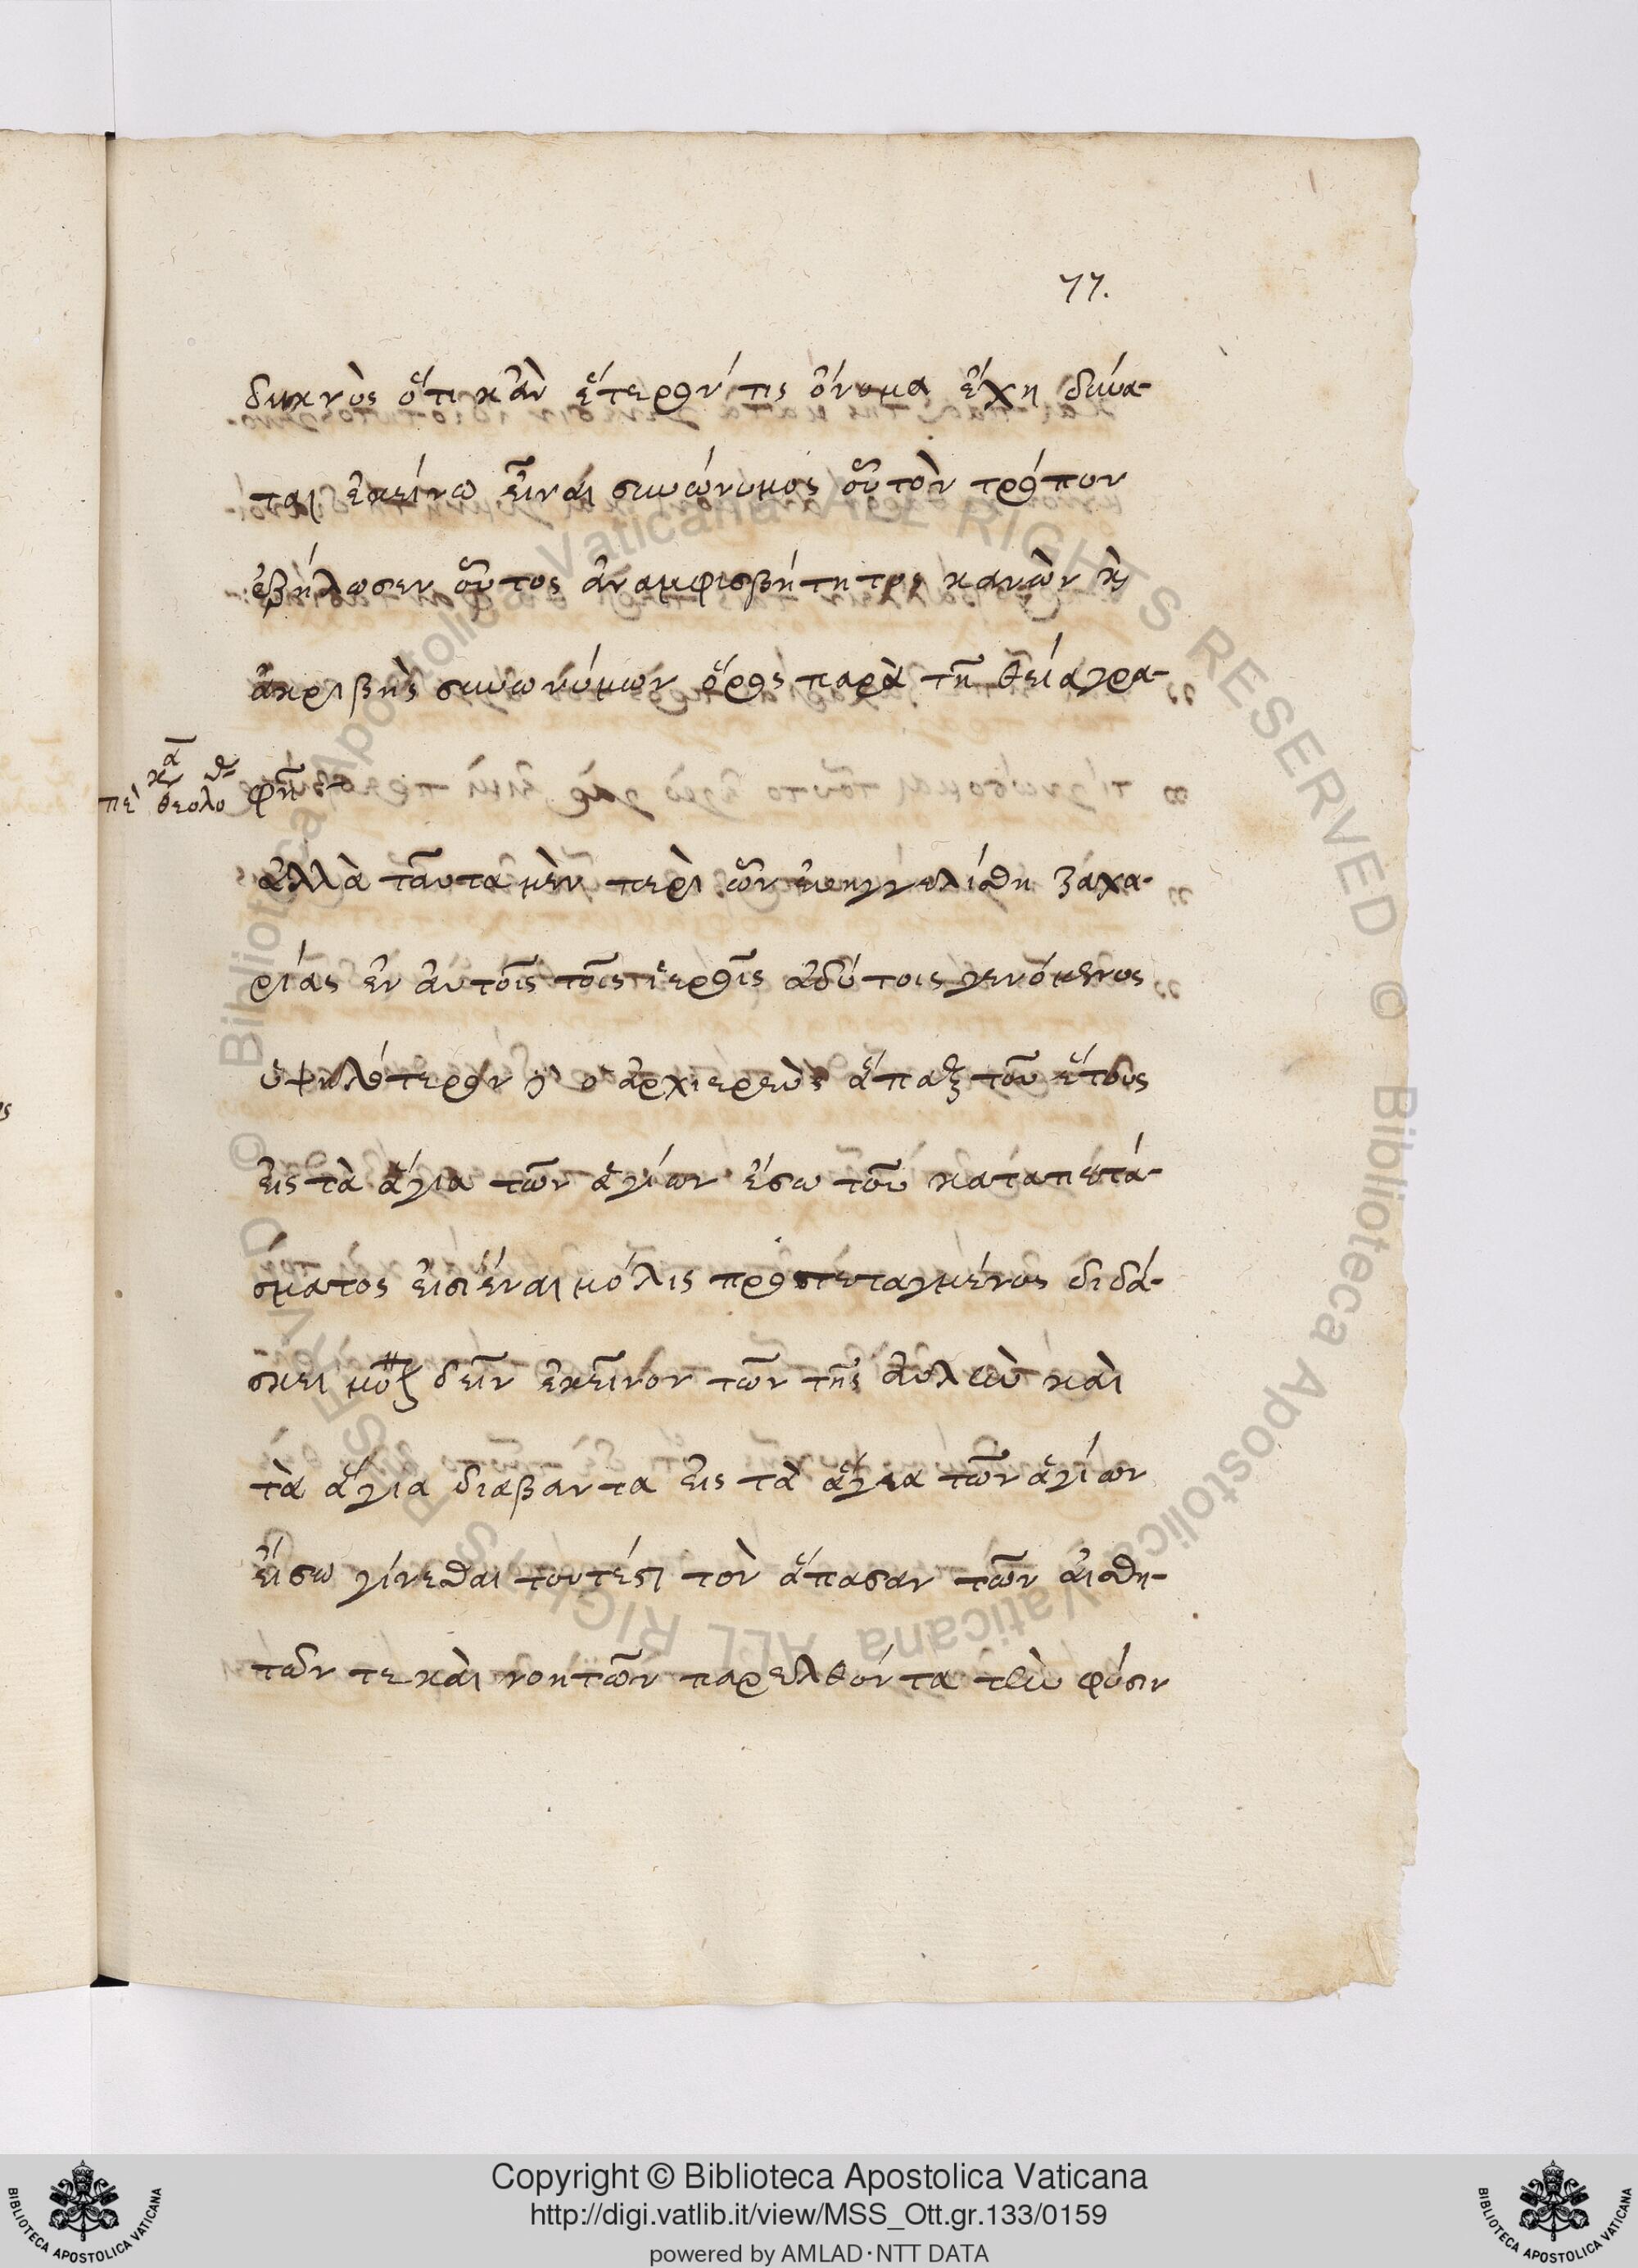 77.
δικνὺς ὅτι κἂν ἕτερόν τις ὄνομα ἔχῃ δύνα-
ται ἐκείνω εἶναι συνώνυμος ὃν τὸν τρόπον
ἐβήλωσεν οὗτος ἀναμφισβήτητος κανὼν κ̀
ἀκριβὴς συνωνύμων ὅρος παρὰ τῆ θεία γρα-
φῆ
ἀλλὰ ταῦτα μὲν περὶ ὧν εὐηγγελίσθη ζαχα-
ρίας ἐν αὐτοῖς τοῖς ἱεροῖς ἀδύτοις γενόμενος
ὑψηλότερον δ' ὁ ἀρχιερεὺς ἅπαξ τοῦ ἔτους
εἰς τὰ ἅγια τῶν ἁγίων ἔσω τοῦ καταπετά-
σματος εἰσιέναι μόλις προστεταγμένος διδά-
σκει δεῖν ἐκεῖνον τῶν τῆς αὐλὴν καὶ
τὰ ἅγια διαβαντα εἰς τὰ ἅγια τῶν ἁγίων
εἴσω γίνεσθαι τουτέστι τὸν ἅπασαν τῶν αἰσθη-
τῶν τε καὶ νοητῶν παρελθόντα τὴν φύσιν
Copyright © Biblioteca Apostolica Vaticana
http://digi.vatlib.it/view/MSS_Ott.gr.133/0159
powered by AMLAD·NTT DATA
BIBLIOTECA APOSTOLICA VATICANA
BIBLIOTECA APOSTOLICA VATICANA
© Biblioteca Apostolica Vaticana ALL RIGHTS RESERVED © Biblioteca Apostolica Vaticana ALL RIGHTS RESERVED